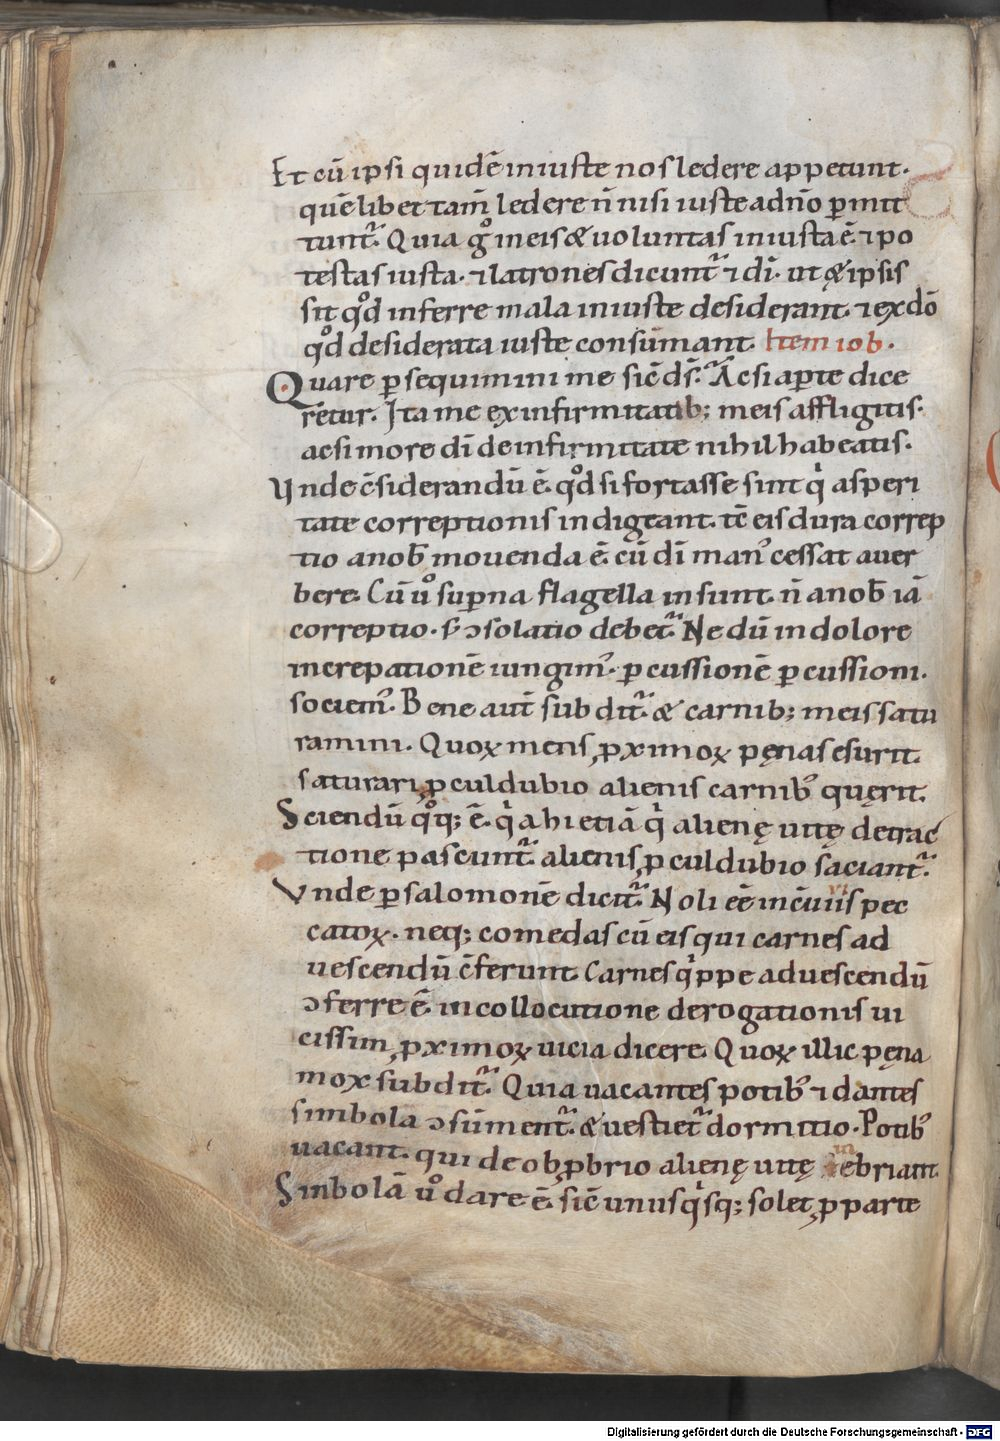 Et cū ipsi quidē iniuste nos ledere appetunt.
quēlibet tam̄ ledere n̄ nisi iuste a dn̄o ꝑmit
tunt᷑. Quia gͦ in eis & uoluntas iniusta ē. ⁊ po
testas iusta. ⁊ latrones dicunt᷑ ⁊ dī. ut & ipsis
sit qͦd inferre mala iniuste desiderant. ⁊ ex dō
qͦd desiderata iuste consūmant. Item iob.
Quare ꝑsequimini me sic̄ ds̄. Ac si aꝑte dice
rētur. Ita me ex infirmitatib; meis affligitis.
ac si more dī de infirmitate nihil habeatis.
Unde c̄siderandū ē. qͦd si fortasse sint qⁱ asperi
tate correptionis indigeant. tc̄ eis dura correp
tio a nob̄ mouenda ē. cū dī manꝰ cessat a uer
bere. Cū uͦ suꝑna flagella insunt. n̄ a nob̄ iā
correptio. s; ↄsolatio debet᷑. Ne dū in dolore
increpationē iungimꝰ. ꝑcussionē ꝑcussioni.
sociemꝰ. Bene aut̄ subdit᷑. & carnib; meis satu
ramini. Quoꝝ mens ꝓximoꝝ pęnas esurit.
saturari ꝓculdubio alienis carnibꝰ quęrit.
Sciendū qͦq; ē. qⁱa hi etiā qⁱ alienę uitę detrac
tione pascunt᷑. alienis ꝓculdubio saciant᷑.
Vnde ꝑ salomonē dicit᷑. Noli eē in c̄uiuiis pec
catoꝝ. neq; comedas cū eis qui carnes ad
uescendū c̄ferunt. Carnes qⁱppe ad uescendū
ↄferre ē. in collocutione derogationis ui
cissim ꝓximoꝝ uicia dicere. Quoꝝ illic pęna
mox subdit᷑. Quia uacantes potibꝰ ⁊ dantes
simbola ↄsūment᷑. & uestiet᷑ dormitio. Potibꝰ
uacant. qui de obꝓbrio alienę uitę inebriant.
Simbolā uͦ dare ē. sic̄ unusqⁱsq; solet ꝓ parte
Digitalisierung gefördert durch die Deutsche Forschungsgemeinschaft - DFG